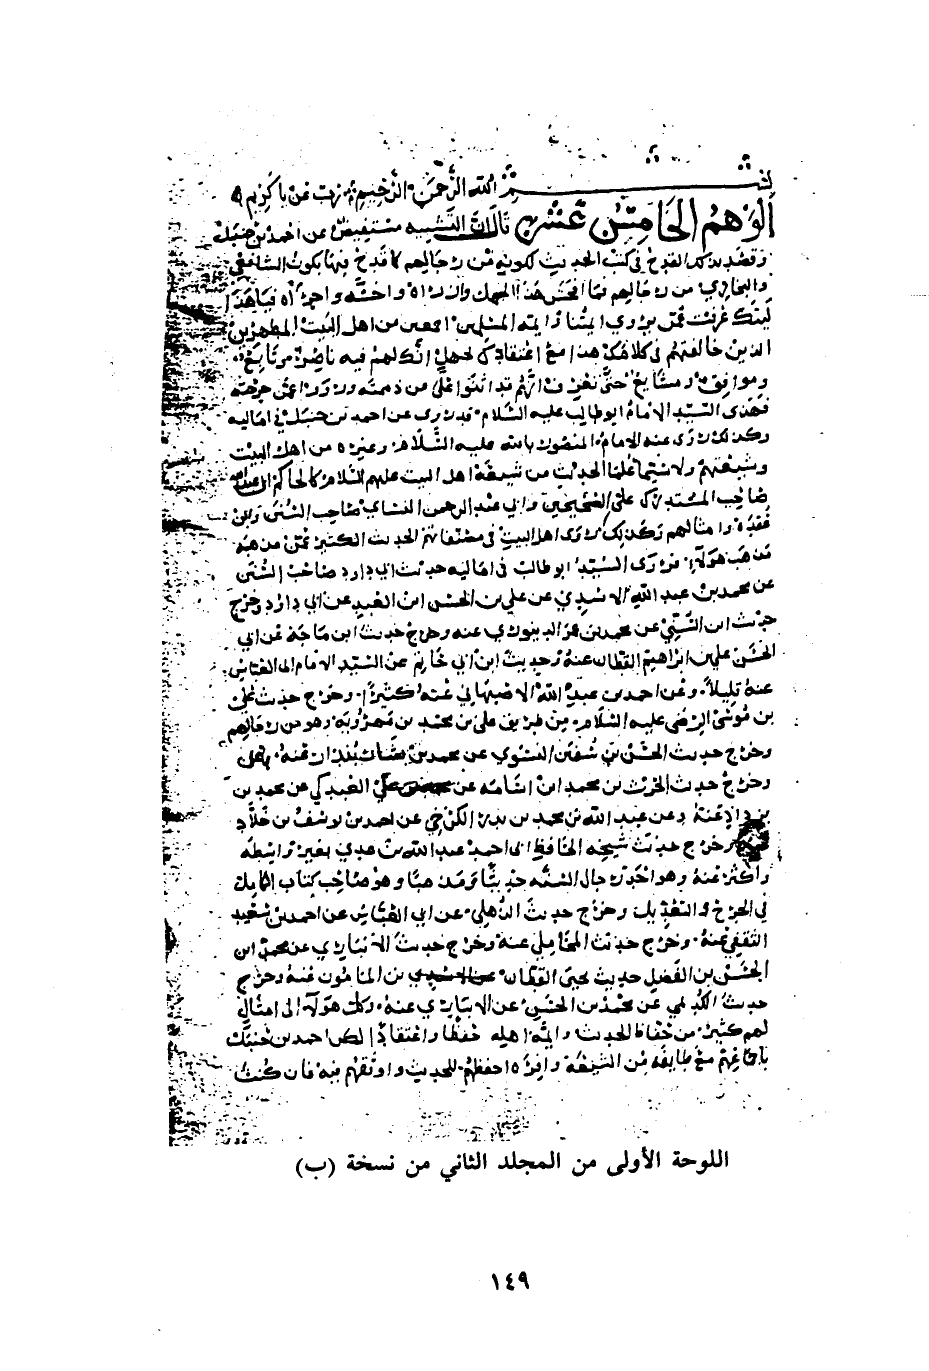 بسم الله الرحمن الرحيم
الوهم الخامس عشر قال إن التشبيه مستفيض عن احمد بن حنبل
وقصد بذلك القدح في كتب الحديث لكونه من رجالهم كما قدح فيها بكون الشافعي
والبخاري من رجالهم
ليتك عرفت عمن روى أئمتنا وأئمة المسلمين أجمعين من اهل البيت المطهرين
الذين خالفتهم في كلامك هذا مع اعتقادك لجهلك أنك لهم فيه ناصر
فهذا السيد الامام ابو طالب عليه السلام قد روى عن احمد بن حنبل في اماليه
وكذلك روى عنه الامام المنصور بالله عليه السلام وغيره من اهل البيت
وشيعتهم ولا سيما علماء الحديث من شيعة اهل البيت عليهم السلام كالحاكم
صاحب المستدرك على الصحيحين وابي عبد الرحمن النسائي صاحب السنن وابن
عقدة وامثالهم وكذلك روى اهل البيت في مصنفاتهم الحديث الكثير عمن مذهبه
مذهب هؤلاء فروى السيد ابو طالب في اماليه حديث ابي داود صاحب السنن
عن محمد بن عبد الله الاسدي عن علي بن الحسن ابن العبد عن ابي داود وخرج
حديث ابن السني عن محمد بن عمر الدينوري عنه وخرج حديث ابن ماجة عن ابي
الحسن علي بن ابراهيم القطان عنه وحديث ابن ابي حاتم عن السيد الامام ابي العباس
عنه قليلا وعن احمد بن عبد الله الاصبهاني عنه كثيرا وخرج حديث علي
بن موسى الرضى عليه السلام من طريق علي بن محمد بن مهرويه وهو من رجالهم
وخرج حديث الحسن بن سفيان النسوي عن محمد بن بشار بندار عنه
وخرج حديث الحرث بن محمد ابن ابي اسامة عن علي العبدكي عن محمد بن
يزداد عنه وعن عبد الله بن محمد بن بدر الكرخي عن احمد بن يوسف بن خلاد
وخرج حديث شيخه الحافظ ابي احمد عبد الله بن عدي بغير واسطة
واكثر عنه وهو احد رجال السنة حديثا ومذهبا وهو صاحب كتاب الكامل
في الجرح والتعديل وخرج حديث الذهلي عن ابي العباس عن احمد بن سعيد
الثقفي عنه وخرج حديث المحاملي عنه وخرج حديث الانباري عن محمد ابن
الحسن بن الفضل حديث يحيى القطان بن المامون عنه وخرج
حديث الكديمي عن محمد بن الحسن عن الانباري عنه وكل هؤلاء الى امثال
لهم كثير من حفاظ الحديث وائمة اهله حفظا واعتقادا لكن احمد بن حنبل
باجماعهم مع طايفة من الشيعة وافرة احفظهم للحديث واوثقهم فيه فان كنت
اللوحة الأولى من المجلد الثاني من نسخة (ب)
١٤٩